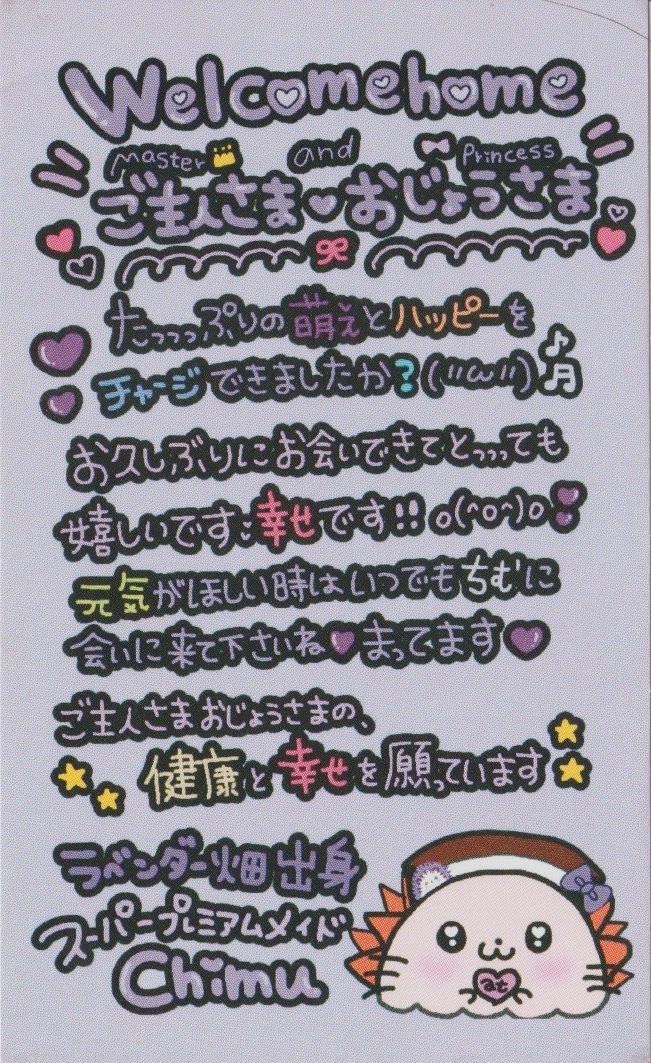 Welcomehome
Master and Princess
ご主人さま♥おじょうさま
たっっっぷりの萌えとハッピーを
チャージできましたか?(〃ω〃)♪
お久しぶりにお会いできてとっっっても
嬉しいです;幸せです!!o(^o^)o
元気がほしい時はいつでもちむに
会いに来て下さいね♥まってます♥
ご主人さまおじょうさまの、
健康と幸せを願っています
ラベンダー畑出身
スーパープレミアムメイド
Chimu
at